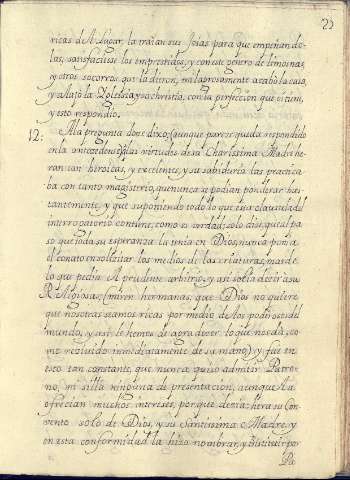 23
ricas del Lugar, la traian sus Joias para que empeñando-
las, satisfaciese los emprestidos, y con este genero de limosnas,
y otros socorros que la dieron, milagrosamente acabó la casa,
y alajó la Yglesia, y sachristia, con la perfeccion que oi tiene,
y esto respondio.
12. A la pregunta doce dixo: (aunque parece queda respondido
en la antecedente) q las virtudes de su Charissima Madre e-
ran heroicas, y excelentes, y su sabiduria las practica-
ba con tanto magisterio, que nunca se podian ponderar bas-
tantemente, y que suponiendo todo lo que esta clausula del
interrogatorio contiene, como es verdad, solo dirá, que el pa-
so que toda su esperanza la tenia en Dios, nunca ponia
el conato en solicitar los medios de las criaturas, mas de
lo que pedia el prudente arbitrio, y asi solia decir a sus
Religiosas: (miren hermanas, que Dios no quiere
que nosotras seamos ricas por medio de los poderosos del
mundo, y asi le hemos de agradecer lo que nos dá, co-
mo recivido inmediatamente de su mano) y fue en
esto tan constante, que nunca quiso admitir Patro-
no, ni silla ninguna de presentacion, aunque la
ofrecian muchos intereses, porque decia: que era su Con-
vento solo de Dios, y su Santissima Madre, y
en esta conformidad la hizo nombrar, y instituir por
Pa